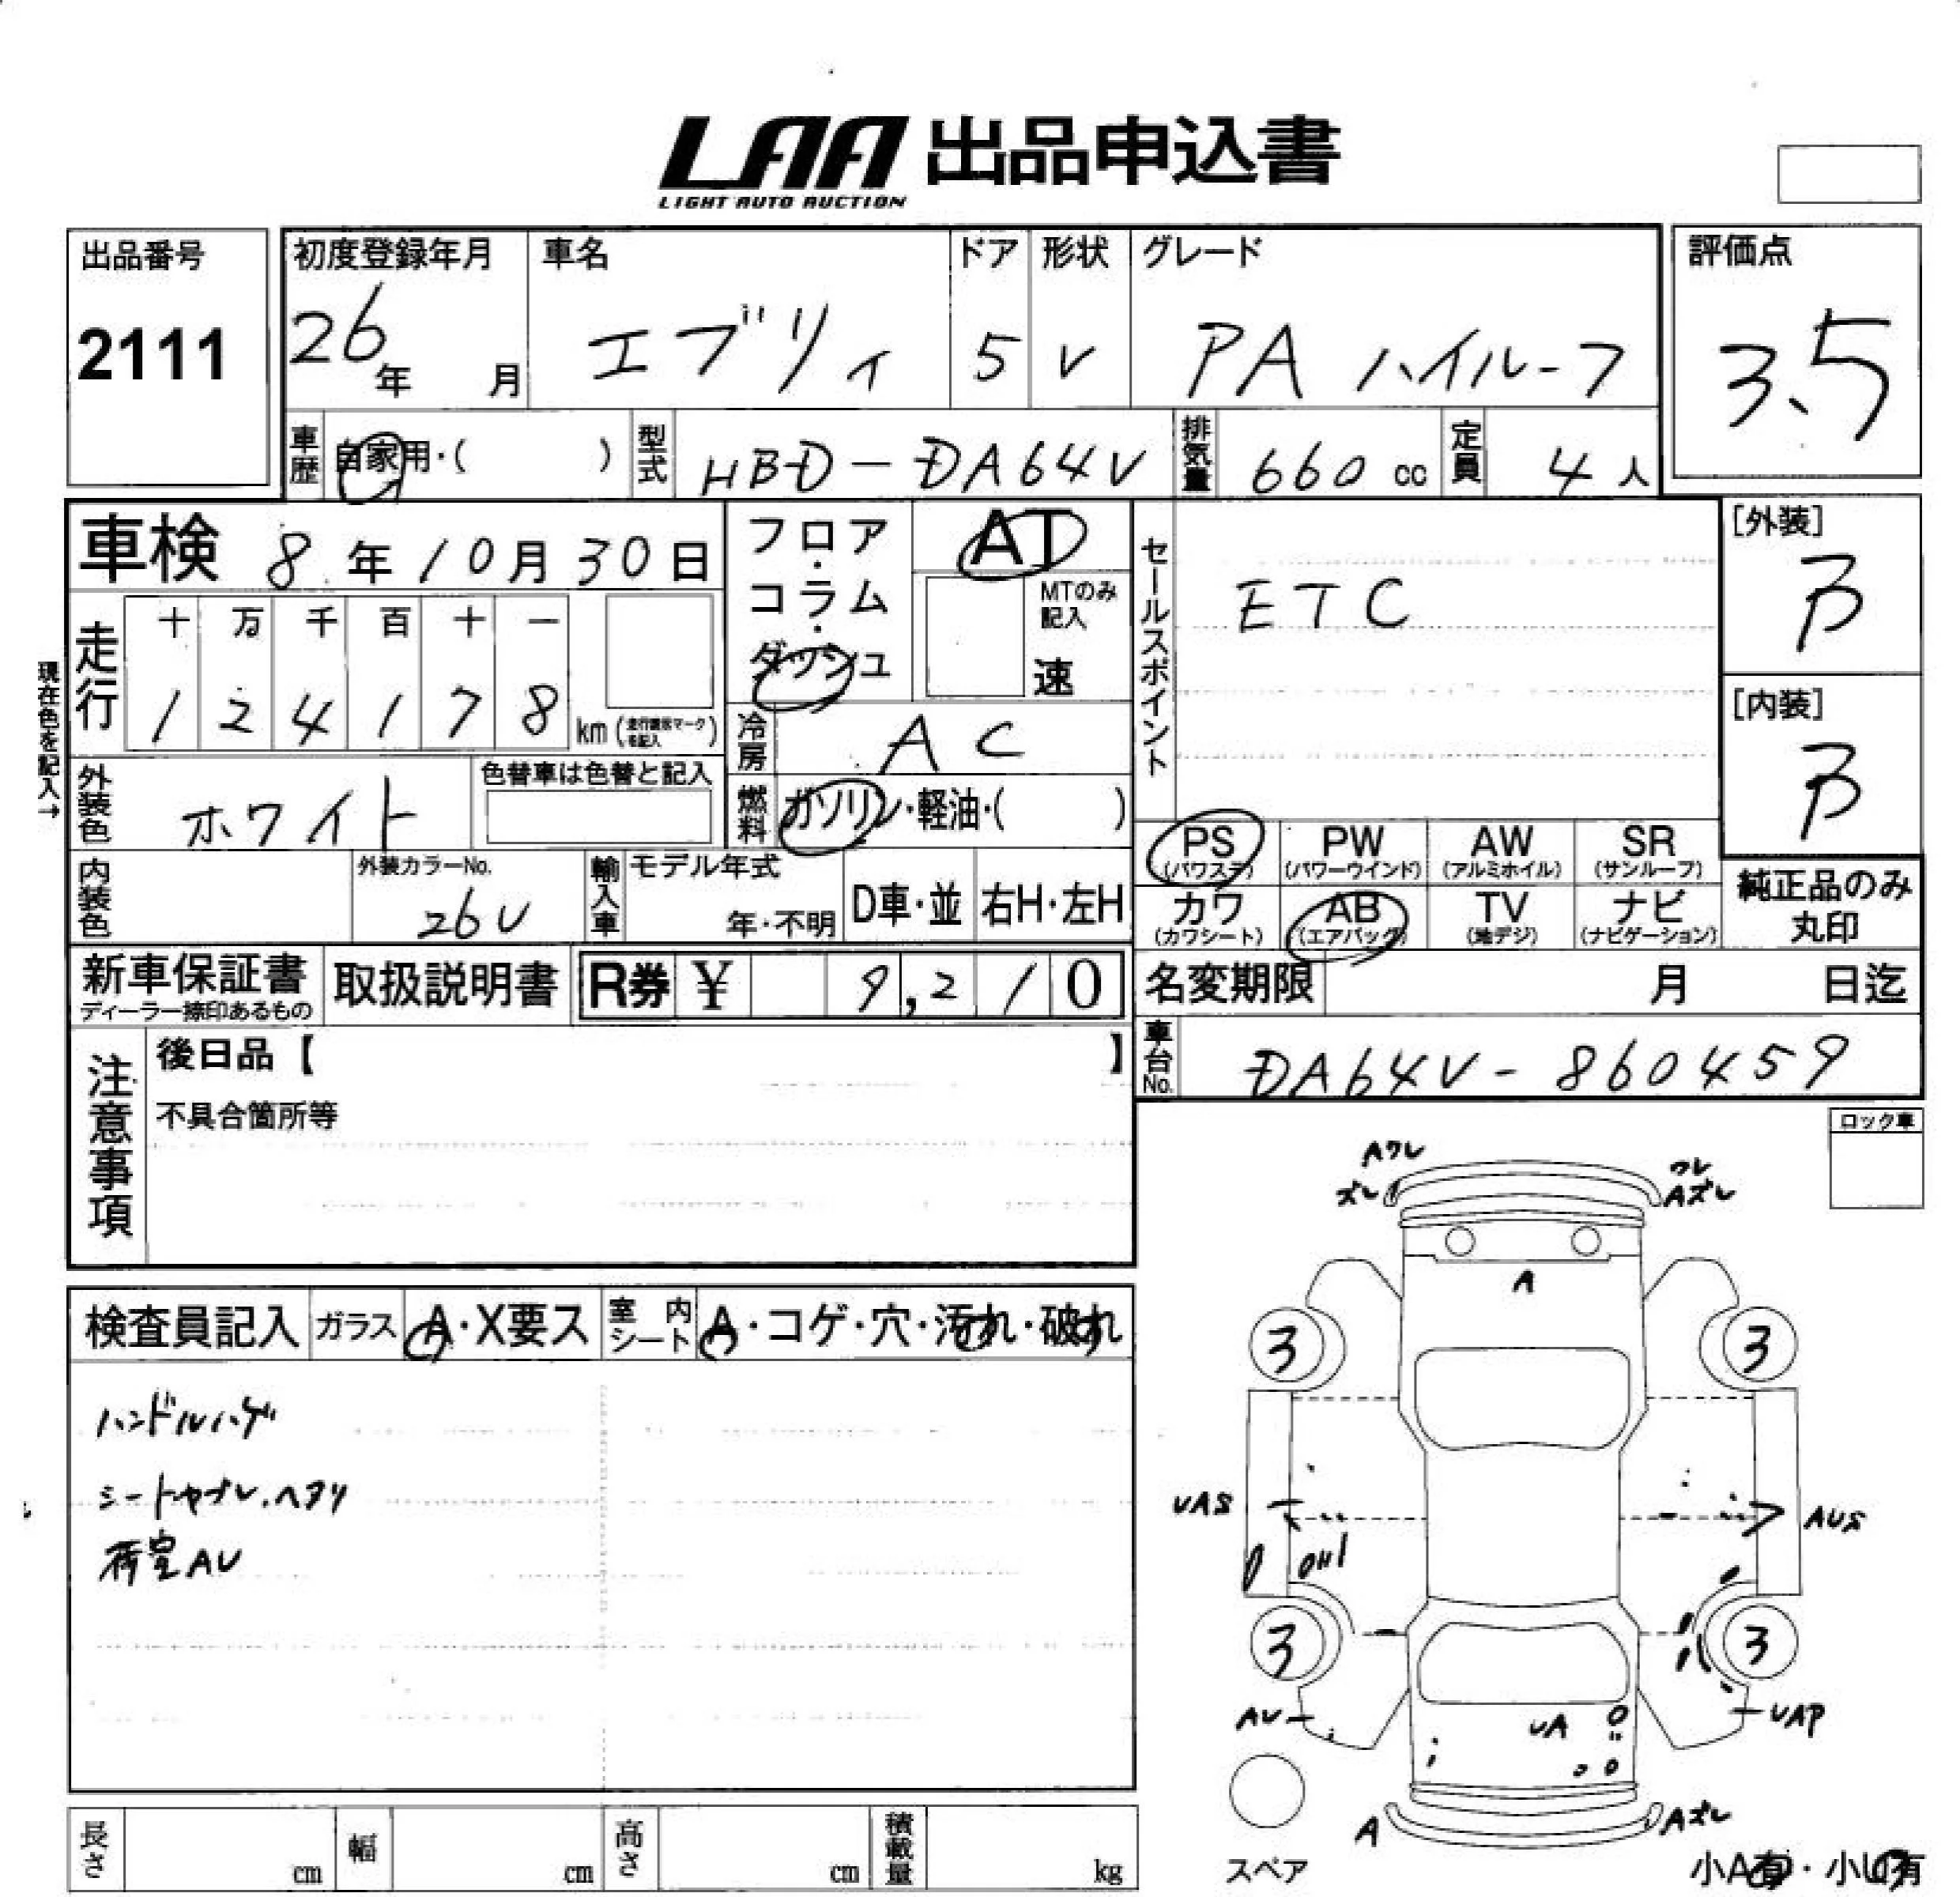 LAA 出品申込書
LIGHT AUTO AUCTION
出品番号
2111
初度登録年月
26年 月
車名
エブリィ
ドア
5
形状
V
グレード
PA ハイルーフ
評価点
3.5
車歴 自家用・( )
型式 HBD-DA64V
排気量 660 cc
定員 4 人
車検 8年10月30日
フロア・コラム・ダッシュ
AT
MTのみ記入
速
セールスポイント
ETC
[外装]
B
[内装]
B
現在色を記入→
走行
十 万 千 百 十 一
1 2 4 1 7 8 km
冷房 AC
外装色 ホワイト
色替車は色替と記入
燃料 ガソリン・軽油・( )
内装色
外装カラーNo.
26U
輸入車
モデル年式
年・不明
D車・並
右H・左H
PS (パワステ)
PW (パワーウインド)
AW (アルミホイル)
SR (サンルーフ)
カワ (カワシート)
AB (エアバック)
TV (地デジ)
ナビ (ナビゲーション)
純正品のみ丸印
新車保証書
ディーラー捺印あるもの
取扱説明書
R券 ¥ 9,210
名変期限 月 日迄
車台No. DA64V-860459
注意事項
後日品【 】
不具合箇所等
ロック車
検査員記入
ガラス A・X要ス
室内シート A・コゲ・穴・汚れ・破れ
ハンドルハゲ
シートヤブレ.ヘタリ
荷室AU
Aワレ
ズレ
ワレ
Aズレ
A
3
3
UAS
AUS
3
3
AU
UA
UAP
A
Aズレ
スペア
小A有・小U有
長さ cm
幅 cm
高さ cm
積載量 kg